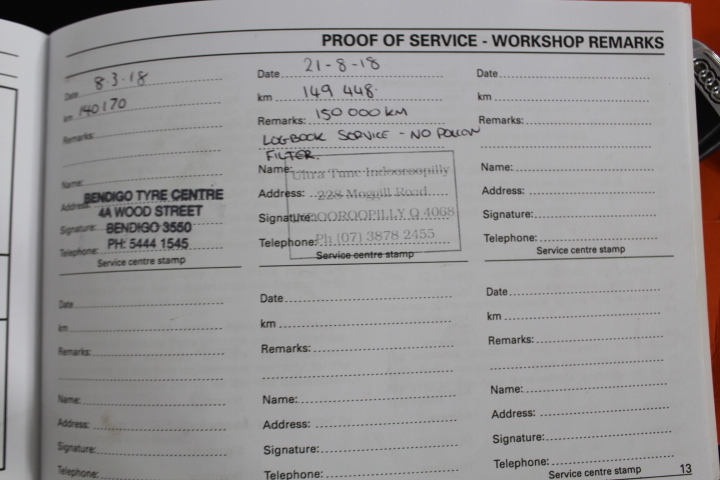 PROOF OF SERVICE - WORKSHOP REMARKS
Date 8-3-18
km 140170
Remarks:
Name:
Address:
Signature:
Telephone:
BENDIGO TYRE CENTRE
4A WOOD STREET
BENDIGO 3550
PH: 5444 1545
Service centre stamp
Date 21-8-18
km 149 448.
Remarks: 150 000 KM
LOGBOOK SERVICE - NO POLLON
FILTER.
Name:
Address:
Signature:
Telephone:
Ultra Tune Indooroopilly
228 Moggill Road
INDOOROOPILLY Q 4068
Ph (07) 3878 2455
Service centre stamp
Date
km
Remarks:
Name:
Address:
Signature:
Telephone:
Service centre stamp
Date
km
Remarks:
Name:
Address:
Signature:
Telephone:
Date
km
Remarks:
Name:
Address:
Signature:
Telephone:
Date
km
Remarks:
Name:
Address:
Signature:
Telephone:
Service centre stamp
13